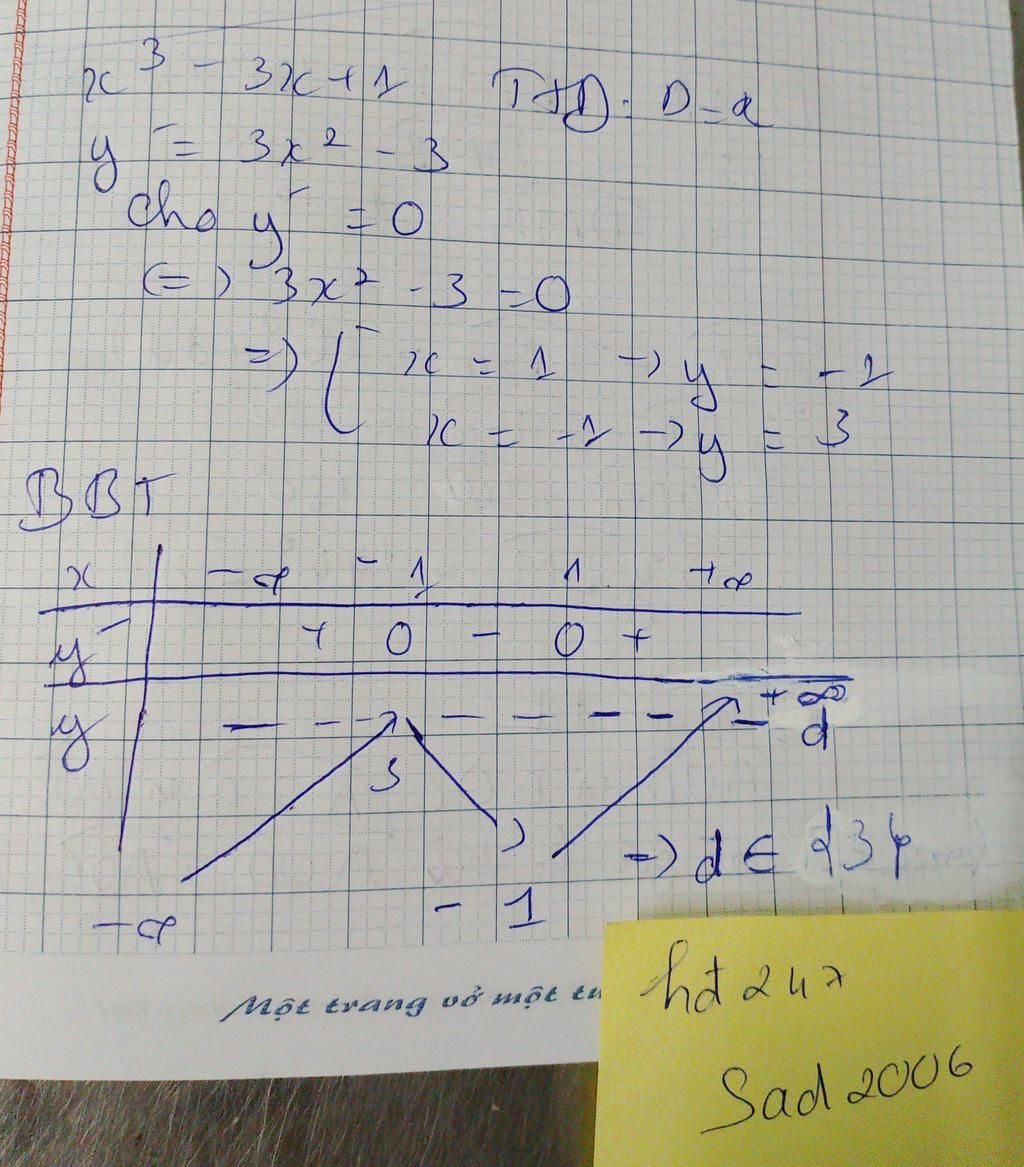 x³ - 3x + 1 TXĐ: D = R
y' = 3x² - 3
cho y' = 0
(=) 3x² - 3 = 0
=) [ x = 1 → y = -1
x = -1 → y = 3
BBT
x -∞ -1 1 +∞
y' + 0 - 0 +
y +∞
d
3
=) d ∈ {3}
-∞ -1
Một trang vở một
hđ 247
Sad 2006